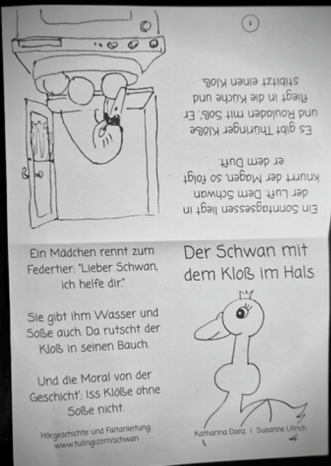 1
Ein Sonntagsessen liegt in
der Luft. Dem Schwan
knurrt der Magen, so folgt
er dem Duft.
Es gibt Thüringer Klöße
und Rouladen mit Soß'. Er
fliegt in die Küche und
stibitzt einen Kloß.
Ein Mädchen rennt zum
Federtier: "Lieber Schwan,
ich helfe dir."
Sie gibt ihm Wasser und
Soße auch. Da rutscht der
Kloß in seinen Bauch.
Und die Moral von der
Geschicht': Iss Klöße ohne
Soße nicht.
Hörgeschichte und Faltanleitung
www.tulingi.com/schwan
Der Schwan mit
dem Kloß im Hals
Katharina Danz | Susanne Ullrich